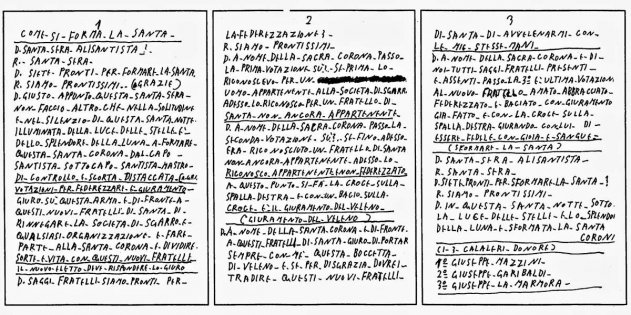 1
COME-SI-FORMA-LA-SANTA-
D. SANTA-SERA-ALISANTISTA-?-
R.- SANTA-SERA-
D. SIETE-PRONTI-PER-FORMARE-LA-SANTA
R. SIAMO-PRONTISSIMI-(GRAZIE)
D. GIUSTO-APPONTO-QUESTA-SANTA-SERA-
NON-FACCIO-ALTRO-CHE-NELLA-SOLITUDINE
E-NEL-SILENZIO-DI-QUESTA-SANTA-NOTTE
ILLUMINATA-DELLA-LUCE-DELLE-STELLE-E-
DELLO-SPLENDORE-DELLA-LUNA-A-FORMARE-
QUESTA-SANTA-CORONA-DAL-CAPO-
SANTISTA-SOTACAPO-SANTISTA-MASTRO-
DI-CONTROLLO-E-SCORTA-DISTACCATA-
VOTAZIONI-PER-FEDERIZZARE-E-GIURAMENTO-
GIURO-SU-QUESTA-ARMA-E-DI-FRONTE-A-
QUESTI-NUOVI-FRATELLI-DI-SANTA-DI-
RINNEGARE-LA-SOCIETA-DI-SGARRO-E-
QUALSIASI-ORGANIZZAZIONE-E-FARE-
PARTE-ALLA-SANTA-CORONA-E-DIVIDERE-
SORTE-E-VITA-CON-QUESTI-NUOVI-FRATELLI
IL-NUOVO-ELETTO-DEVE-RISPONDERE-LO-GIURO
D. SAGGI-FRATELLI-SIAMO-PRONTI-PER-
2
LA-FEDERIZZAZIONE?-
R. SIAMO-PRONTISSIMI-
D. A-NOME-DELLA-SACRA-CORONA-PASSO
LA-PRIMA-VOTAZIONE-SU?-SE-PRIMA-LO-
RICONOSCEVO-PER-UN-
UOMO-APPARTENENTE-ALLA-SOCIETA-DI-SGARR
ADESSO-LO-RICONOSCO-PER-UN-FRATELLO-DI-
SANTA-NON-ANCORA-APPARTENENTE-
D. A-NOME-DELLA-SACRA-CORONA-PASSO-LA-
SECONDA-VOTAZIONE-SU?-SE-FINO-ADESSO-
ERA-RICONOSCIUTO-UN-FRATELLO-DI-SANTA
NON-ANCORA-APPARTENENTE-ADESSO-LO-
RICONOSCO-APPARTENENTE-NON-FEDERIZZATO
A-QUESTO-PUNTO-SI-FA-LA-CROCE-SULLA-
SPALLA-DESTRA-E-CON-UN-BACIO-SULLA-
CROCE-E-IL-GIURAMENTO-DEL-VELENO-
(GIURAMENTO-DEL-VELENO)
D. A-NOME-DELLA-SANTA-CORONA-E-DI-FRONTE-
A-QUESTI-FRATELLI-DI-SANTA-GIURO-DI-PORTAR
SEMPRE-CON-ME-QUESTA-BOCCETTA-
DI-VELENO-E-SE-PER-DISGRAZIA-DOVREI-
TRADIRE-QUESTI-NUOVI-FRATELLI-
3
DI-SANTA-DI-AVVELENARMI-CON-
LE-MIE-STESSE-MANI-
D. A-NOME-DELLA-SACRA-CORONA-E-DI-
NOI-TUTTI-SAGGI-FRATELLI-PRESENTI-
E-ASSENTI-PASSO-LA-3ª-E-ULTIMA-VOTAZION
AL-NUOVO-FRATELLO-AMATO-ABBRACCIATO-
FEDERIZZATO-E-BACIATO-CON-GIURAMENTO
GIA-FATTO-E-CON-LA-CROCE-SULLA-
SPALLA-DESTRA-GIURANDO-CON-LUI-DI-
ESSERE-FEDELE-CON-GIOIA-E-SANGUE?
(SFORMARE-LA-SANTA)
D. SANTA-SERA-ALISANTISTA-
R. SANTA-SERA-
D. SIETE-PRONTI-PER-SFORMARE-LA-SANTA-?
R. SIAMO-PRONTISSIMI-
D. IN-QUESTA-SANTA-NOTTE-SOTTO-
LA-LUCE-DELLE-STELLE-E-LO-SPLENDOR
DELLA-LUNA-E-SFORMATA-LA-SANTA
CORONI
(I-3-CALALERI-DONORE)
1º GIUSEPPE-MAZZINI-
2º GIUSEPPE-GARIBALDI-
3º GIUSEPPE-LA-MARMORA-